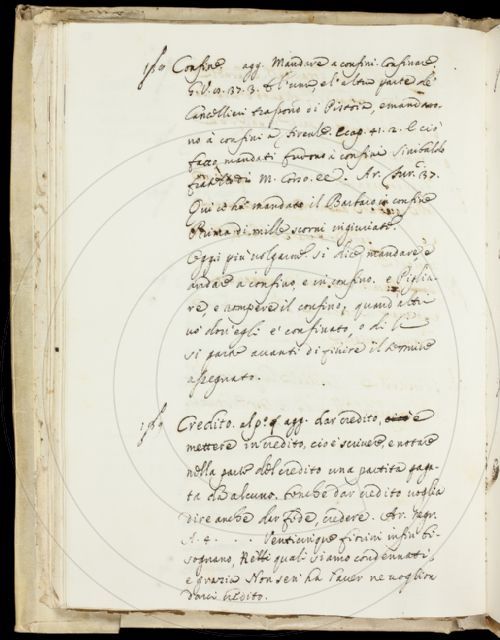 Confine, agg. Mandare a confini. Confinare,
G. V. 37. 3. E l'una, e l'altra parte de'
Cancellieri trassono di Pistoia, e mandaro
no a confini a Firenze. E cap. 41. 2. E ciò
fatto mandati furono a confini Sinibaldo
fratello di M. Corso. ec. Ar. Fur. 37.
Qui ci ha mandato il Barbaro in confine
Prima di mille scorni ingiuriate.
Oggi più volgarmte si dice mandare, e
andare a confino, e in confino. e Piglia-
re, e rompere il confino, quand' altri
vo' dov' egli e' confinato, o di lì
si parte avanti di finire il termine
assegnato.
Credito. al p.º § agg. dar credito, e
mettere in credito, cioè scrivere, e notare
nella parte del credito una partita paga-
ta da alcuno. benche dar credito voglia
dire anche dar fede, credere. Ar. Negr.
A. 4. . . . Venticinque fiorini infin bi-
sognano, Relli quali siamo condennati,
e grazia Non sen' ha l'aver ne voglion
darci credito.